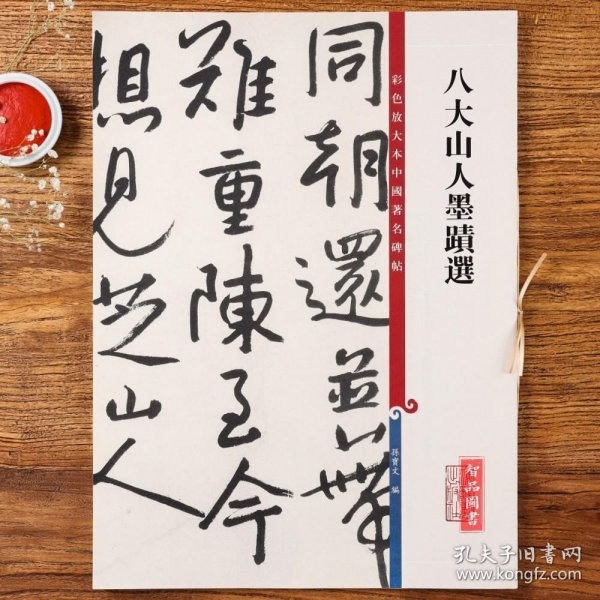 八大山人墨蹟選
彩色放大本中國著名碑帖
孫寶文 編
同朝還並
難重陳至今
想見芝山人
智品圖書
孔夫子旧书网
www.kongfz.com